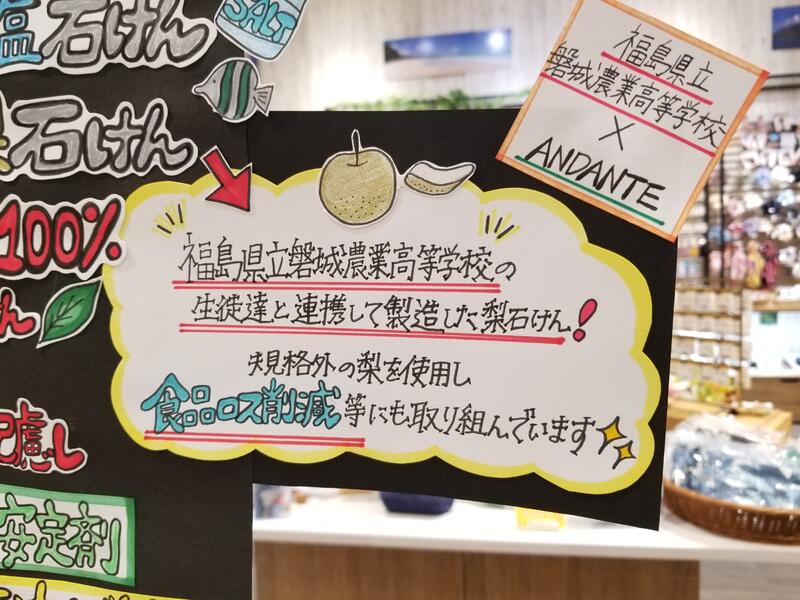 塩石けん
SALT
石けん
100%
ん
慮し
安定剤
福島県立
磐城農業高等学校
×
ANDANTE
福島県立磐城農業高等学校の
生徒達と連携して製造した梨石けん!
規格外の梨を使用し
食品ロス削減等にも取り組んでいます